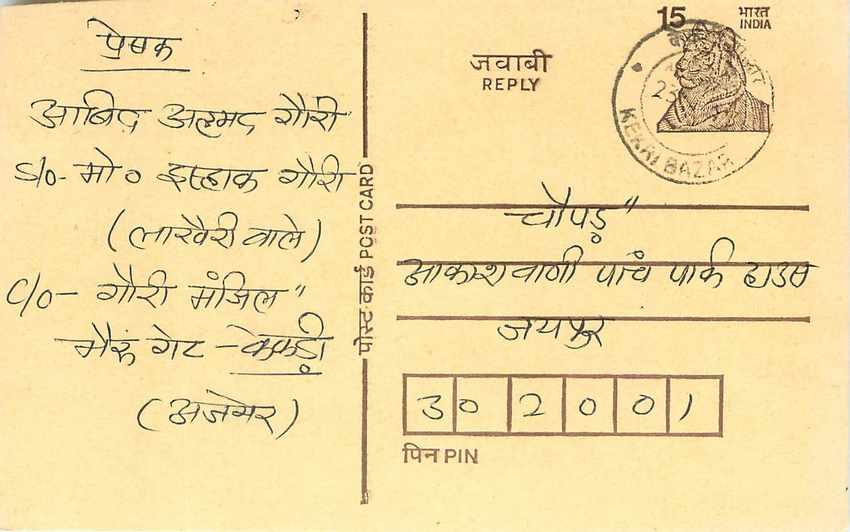 प्रेषक
आबिद अहमद गौरी
S/o- मो० इस्हाक गौरी
(लाखैरी वाले)
C/o- गौरी मंजिल"
भैरू गेट - केकड़ी
(अजमेर)
पोस्ट कार्ड POST CARD
जवाबी
REPLY
15 भारत
INDIA
23
KEKRI BAZAR
चौपड़"
आकाशवाणी पांच पार्क हाउस
जयपुर
302001
पिन PIN